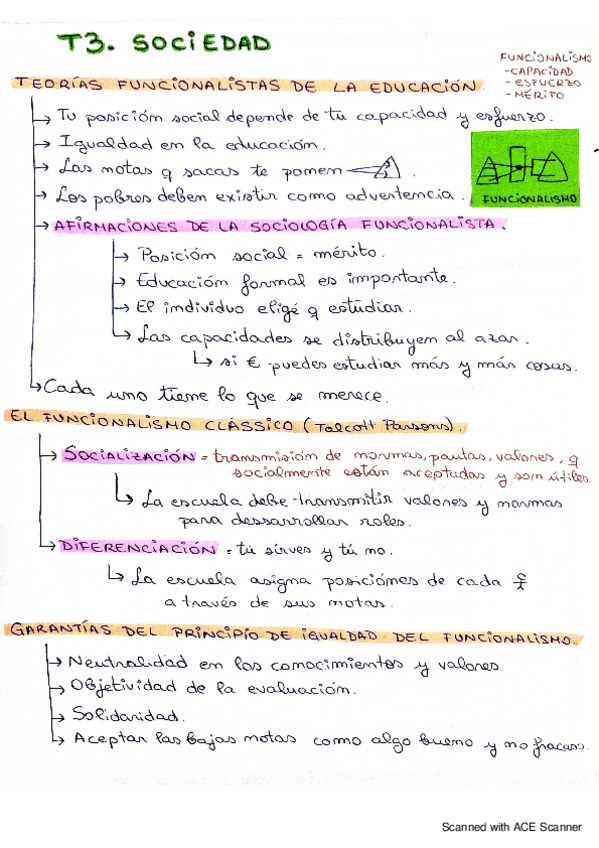 T3. SOCIEDAD
FUNCIONALISMO
-CAPACIDAD
- ESFUERZO
- MÉRITO
TEORÍAS FUNCIONALISTAS DE LA EDUCACIÓN.
↳ Tu posición social depende de tu capacidad y esfuerzo.
↳ Igualdad en la educación.
↳ Las notas q sacas te ponen
↳ Los pobres deben existir como advertencia.
FUNCIONALISMO
→ AFIRMACIONES DE LA SOCIOLOGÍA FUNCIONALISTA.
↳ Posición social = mérito.
↳ Educación formal es importante.
↳ El individuo eligé q estudiar.
↳ Las capacidades se distribuyen al azar.
↳ si € puedes estudiar más y más cosas.
↳ Cada uno tiene lo que se merece.
EL FUNCIONALISMO CLÁSSICO (Talcott Parsons).
→ SOCIALIZACIÓN = transmisión de normas, pautas, valores, q
socialmente están aceptadas y son útiles.
↳ La escuela debe transmitir valores y normas
para dessarrollar roles.
→ DIFERENCIACIÓN = tú sirves y tú no.
↳ La escuela asigna posiciónes de cada
a través de sus notas.
GARANTÍAS DEL PRINCIPIO DE IGUALDAD DEL FUNCIONALISMO.
→ Neutralidad en los conocimientos y valores.
→ Objetividad de la evaluación.
→ Solidaridad.
↳ Aceptar las bajas notas como algo bueno y no fracaso.
Scanned with ACE Scanner